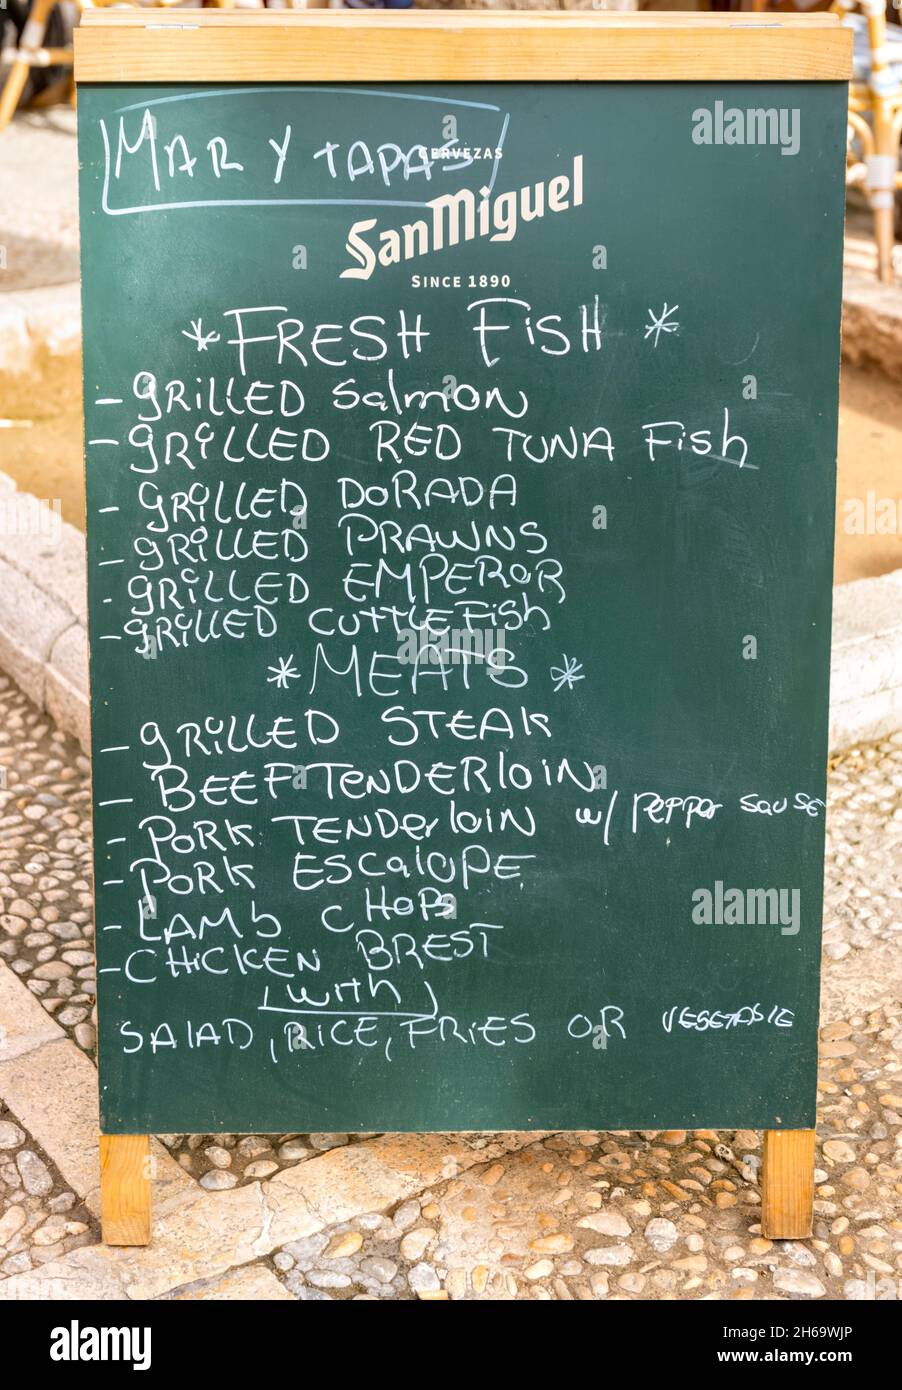 MAR Y TAPAS
CERVEZAS
SanMiguel
SINCE 1890
* FRESH Fish *
- GRILLED Salmon
- GRILLED RED TUNA Fish
- GRILLED DORADA
- GRILLED PRAWNS
- GRILLED EMPEROR
- GRILLED CUTTLEFish
* MEATS *
- GRILLED STEAK
- BEEF TENDERloiN
- PORK TENDERloiN w/ pepper sause
- PORK ESCaloPE
- LAMb CHOPS
- CHICKEN BREST
(with)
SALAD, RICE, FRIES OR VEGETABLE
alamy
alamy
a
a
a
a
a
a
a
a
a
a
alamy
Image ID: 2H69WJP
www.alamy.com